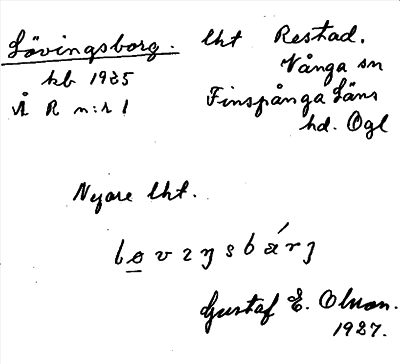 Lövingsborg. lht Restad.
kb 1935 Vånga sn
Å R n:r 1 Finspånga Läns
hd. Ögl
Nyare lht.
Gustaf E. Olson.
1927.